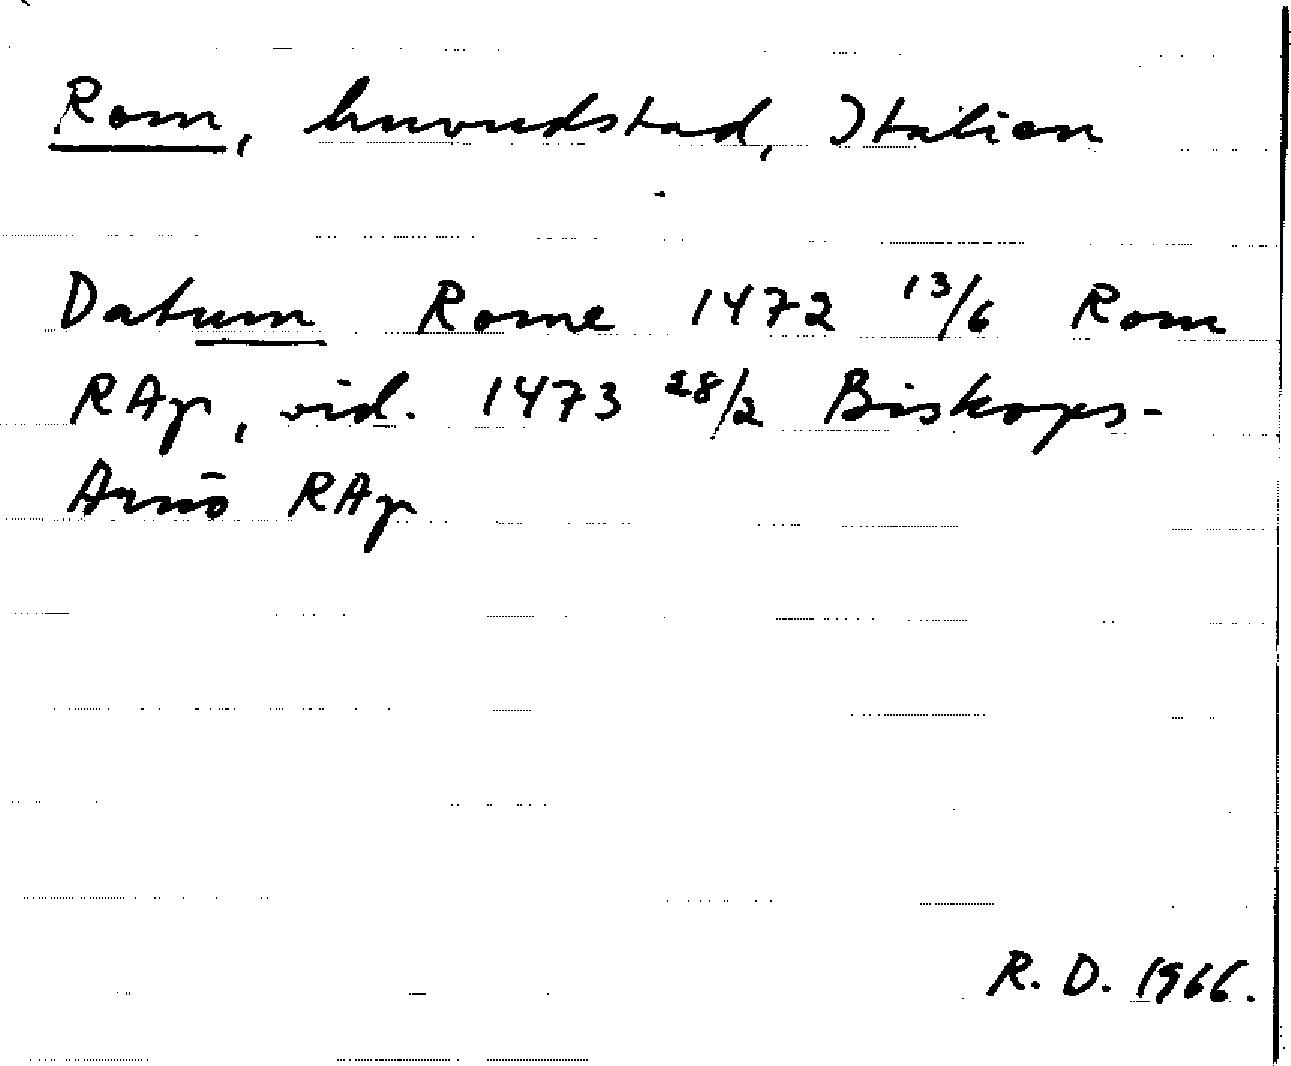 Rom, huvudstad, Italien
Datum Rome 1472 13/6 Rom
RAp, vid. 1473 28/2 Biskops-
Arnö RAp
R. D. 1966.